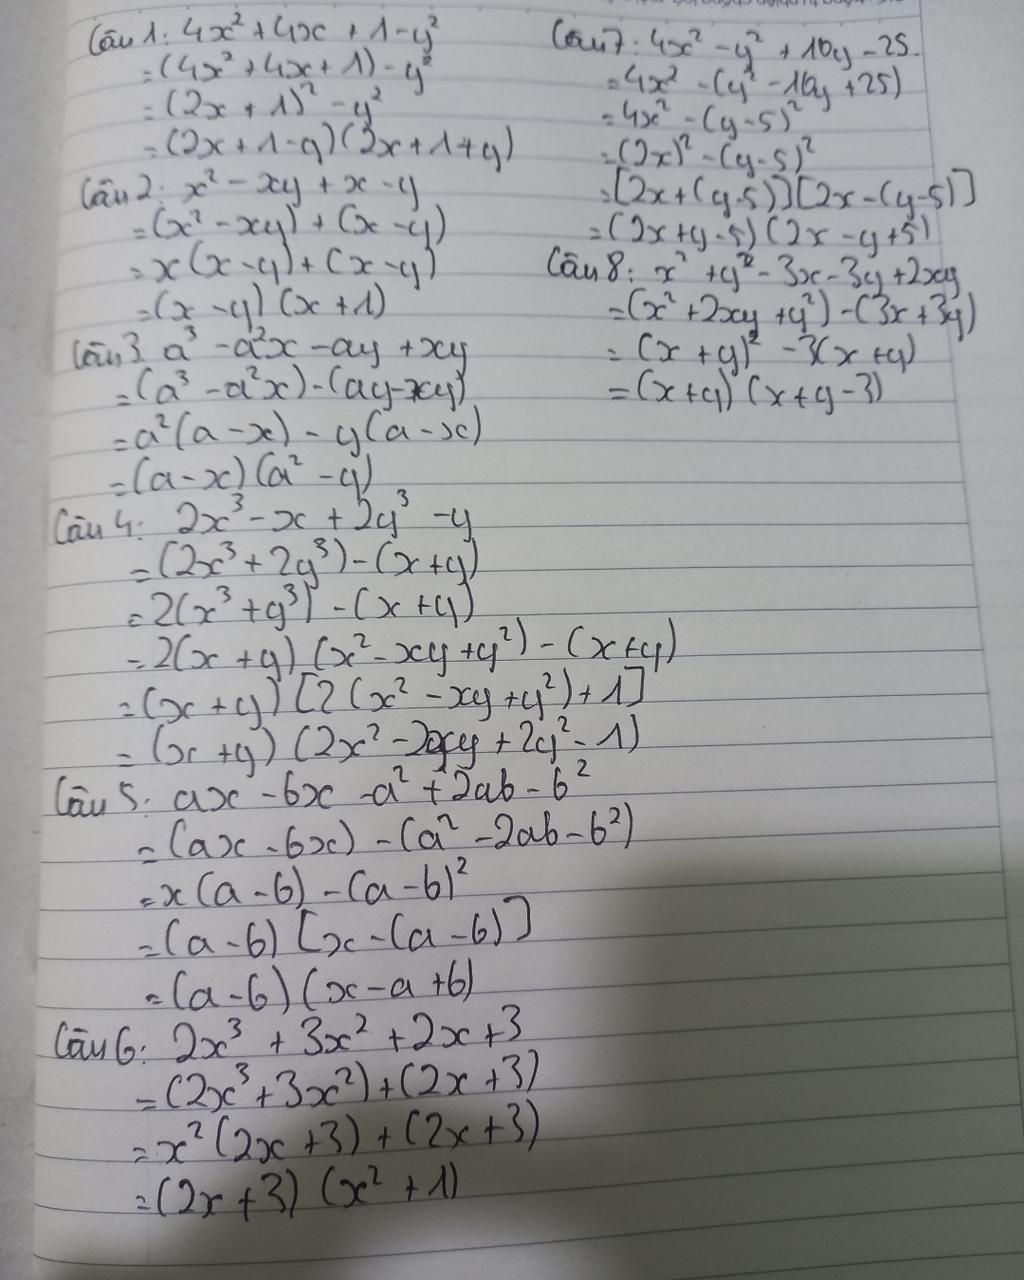 Câu 1: 4x² + 4x + 1 - y²
= (4x² + 4x + 1) - y²
= (2x + 1)² - y²
= (2x + 1 - y) (2x + 1 + y)
Câu 2: x² - xy + x - y
= (x² - xy) + (x - y)
= x(x - y) + (x - y)
= (x - y) (x + 1)
Câu 3. a³ - a²x - ay + xy
= (a³ - a²x) - (ay - xy)
= a²(a - x) - y(a - x)
= (a - x) (a² - y)
Câu 4: 2x³ - x + 2y³ - y
= (2x³ + 2y³) - (x + y)
= 2(x³ + y³) - (x + y)
= 2(x + y) (x² - xy + y²) - (x + y)
= (x + y) [2(x² - xy + y²) + 1]
= (x + y) (2x² - 2xy + 2y² - 1)
Câu 5: ax - bx - a² + 2ab - b²
= (ax - bx) - (a² - 2ab - b²)
= x(a - b) - (a - b)²
= (a - b) [x - (a - b)]
= (a - b) (x - a + b)
Câu 6: 2x³ + 3x² + 2x + 3
= (2x³ + 3x²) + (2x + 3)
= x²(2x + 3) + (2x + 3)
= (2x + 3) (x² + 1)
Câu 7: 4x² - y² + 10y - 25
= 4x² - (y² - 10y + 25)
= 4x² - (y - 5)²
= (2x)² - (y - 5)²
= [2x + (y - 5)] [2x - (y - 5)]
= (2x + y - 5) (2x - y + 5)
Câu 8: x² + y² - 3x - 3y + 2xy
= (x² + 2xy + y²) - (3x + 3y)
= (x + y)² - 3(x + y)
= (x + y) (x + y - 3)